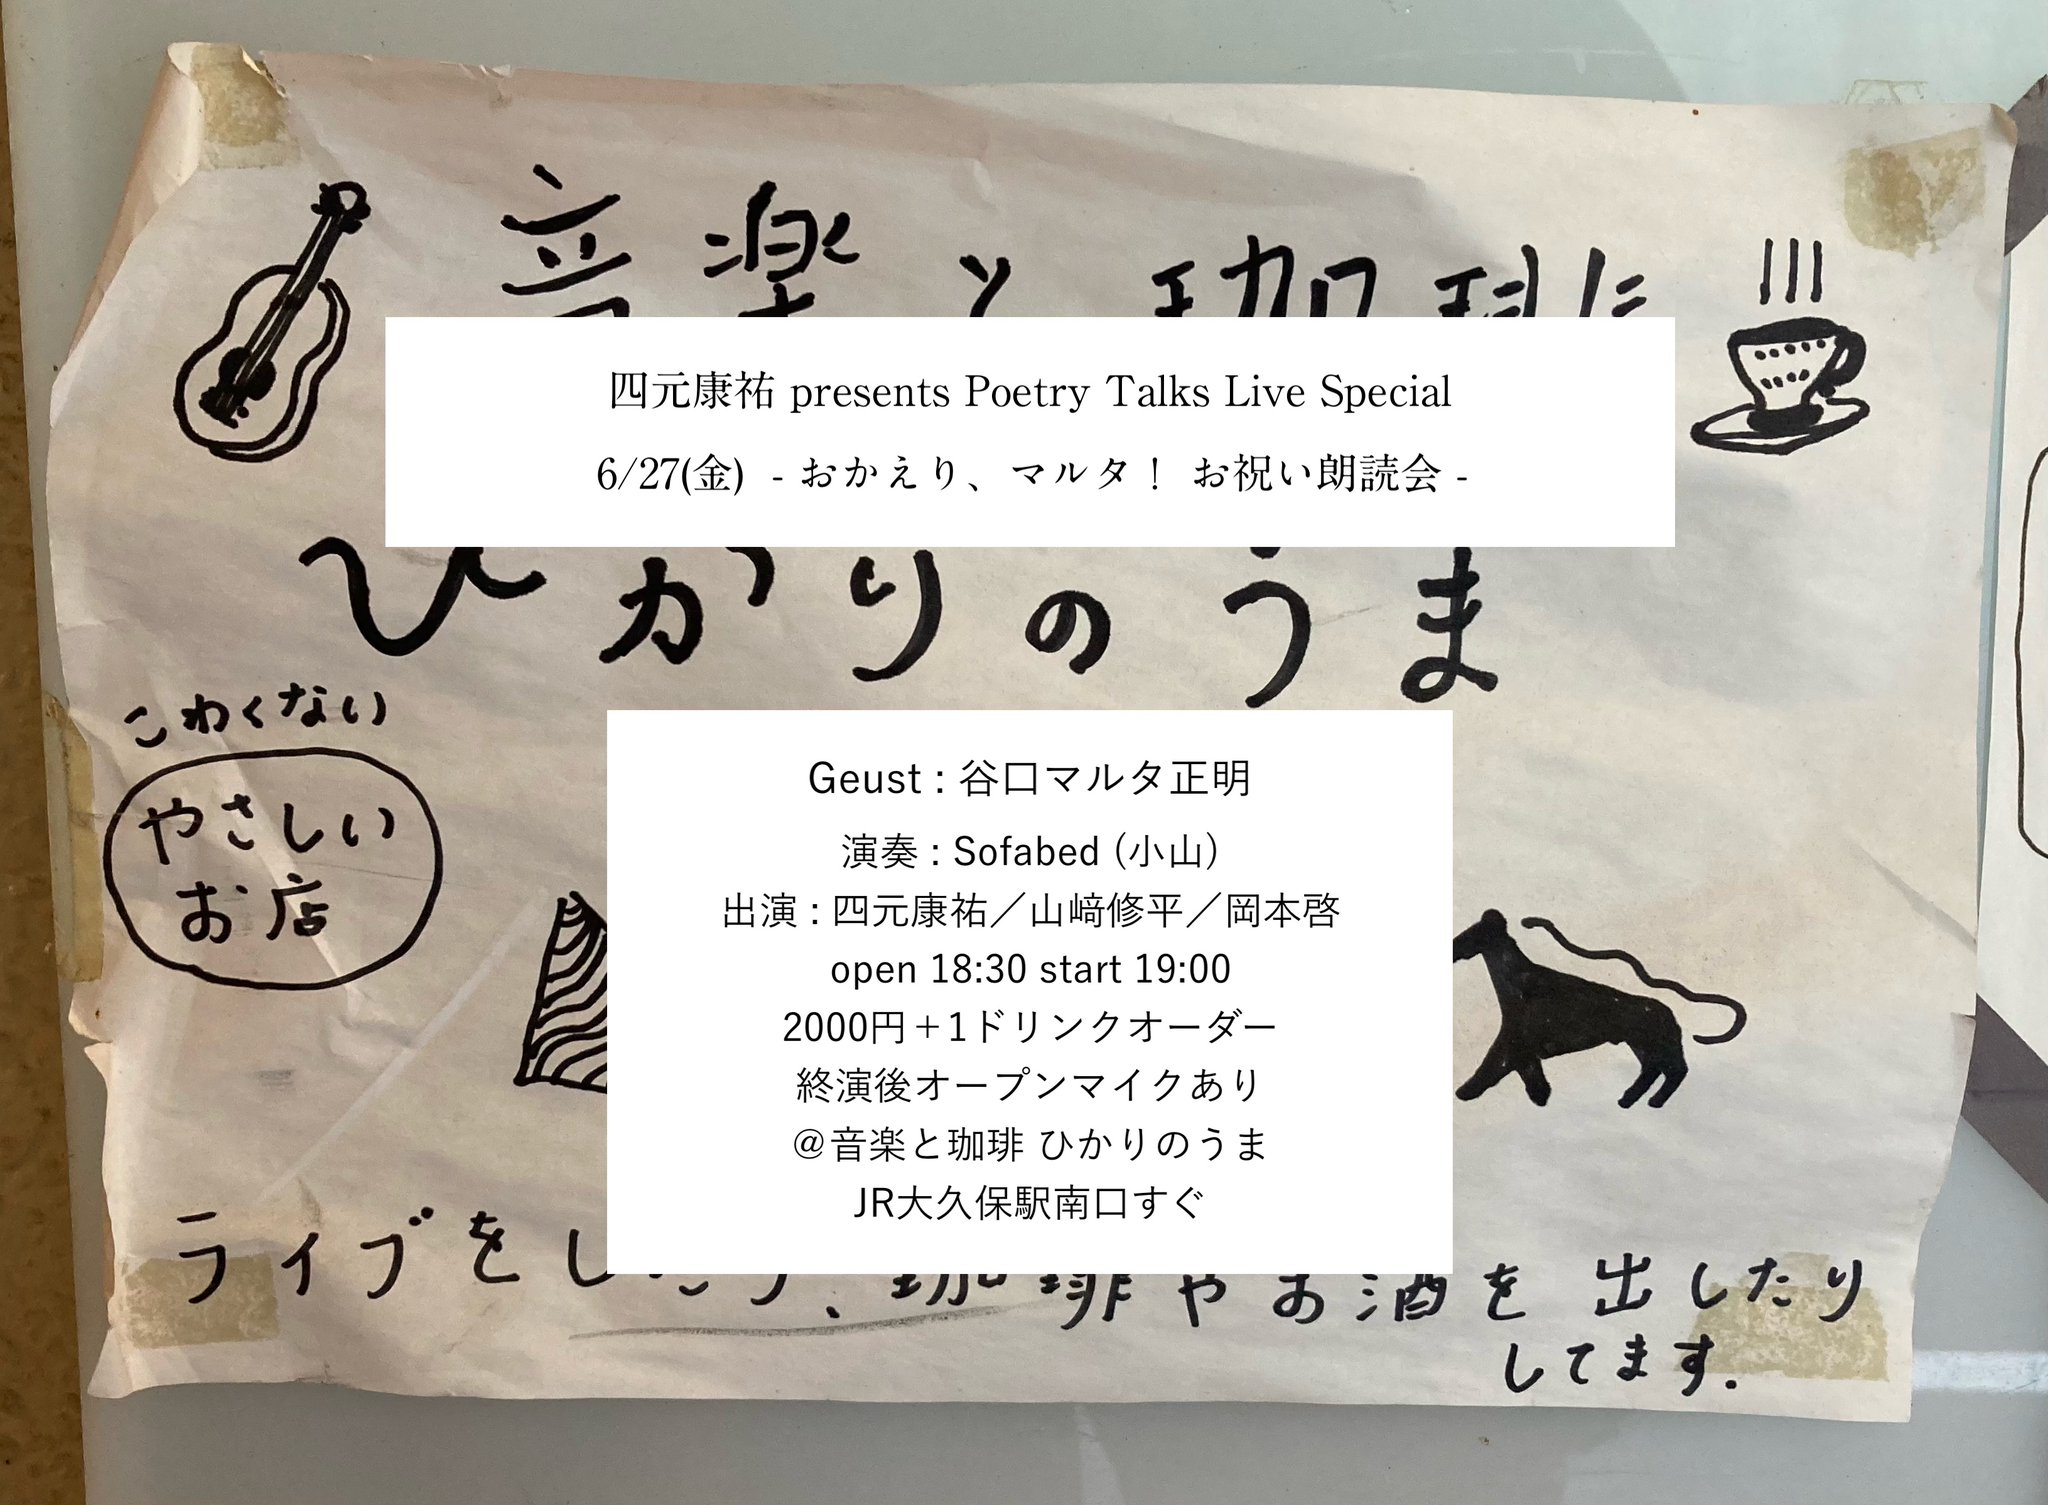 音楽と珈琲に
四元康祐 presents Poetry Talks Live Special
6/27(金) - おかえり、マルタ！ お祝い朗読会 -
ひかりのうま
こわくない
やさしい
お店
Geust : 谷口マルタ正明
演奏 : Sofabed (小山)
出演 : 四元康祐／山﨑修平／岡本啓
open 18:30 start 19:00
2000円＋1ドリンクオーダー
終演後オープンマイクあり
＠音楽と珈琲 ひかりのうま
JR大久保駅南口すぐ
ライブをしたり、珈琲やお酒を出したり
してます.